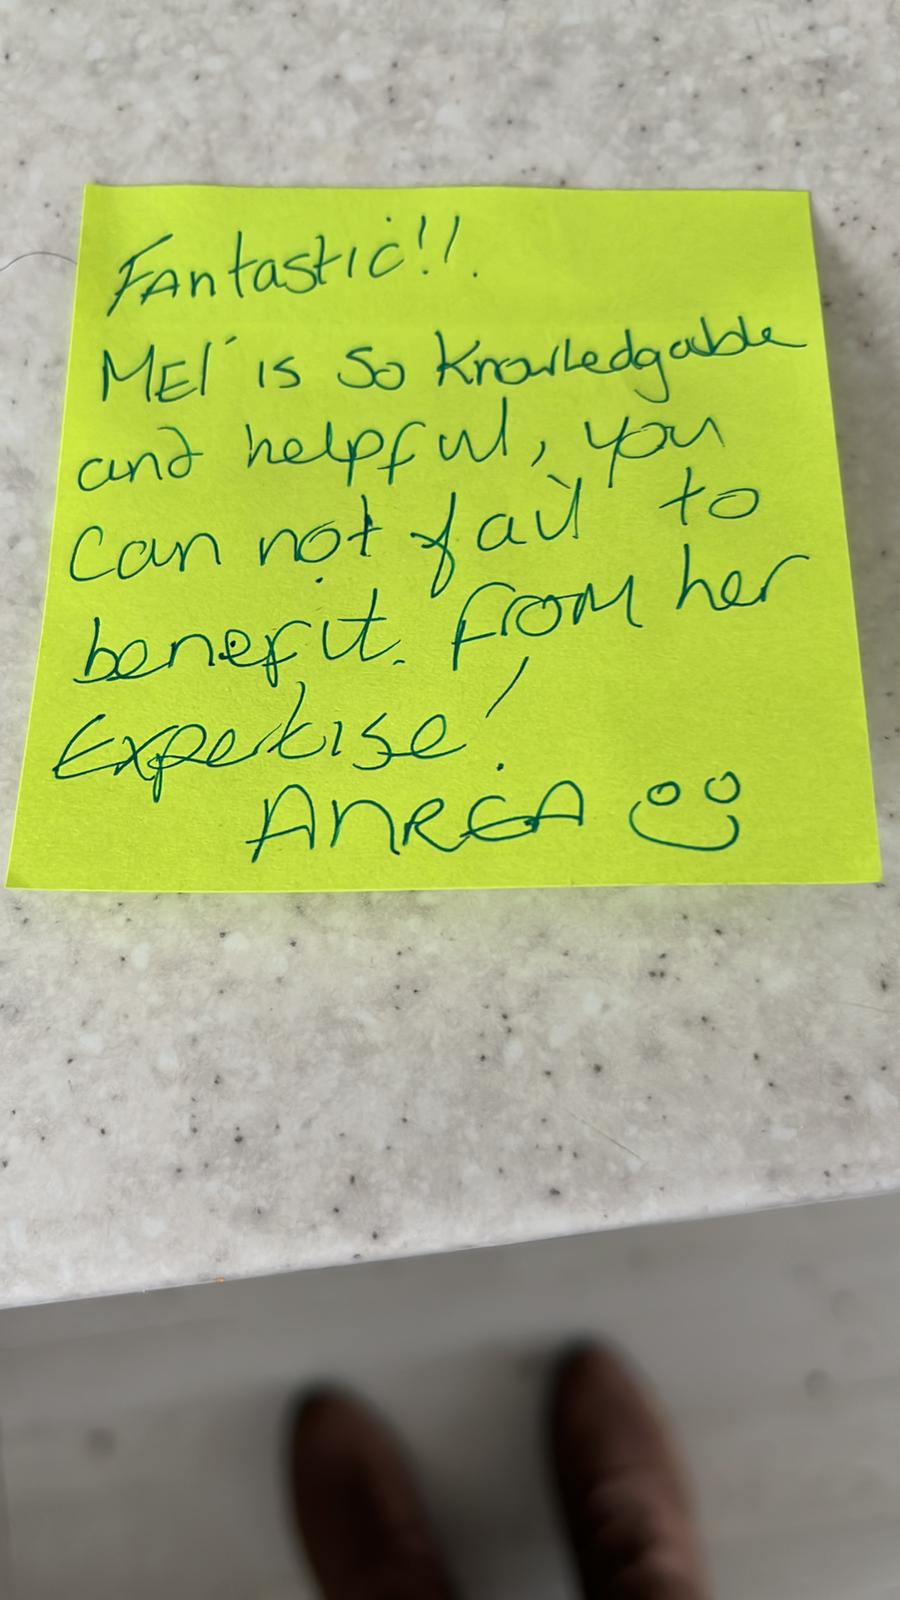 Fantastic!!
Mel is so knowledgable
and helpful, you
can not fail to
benefit from her
Expertise!